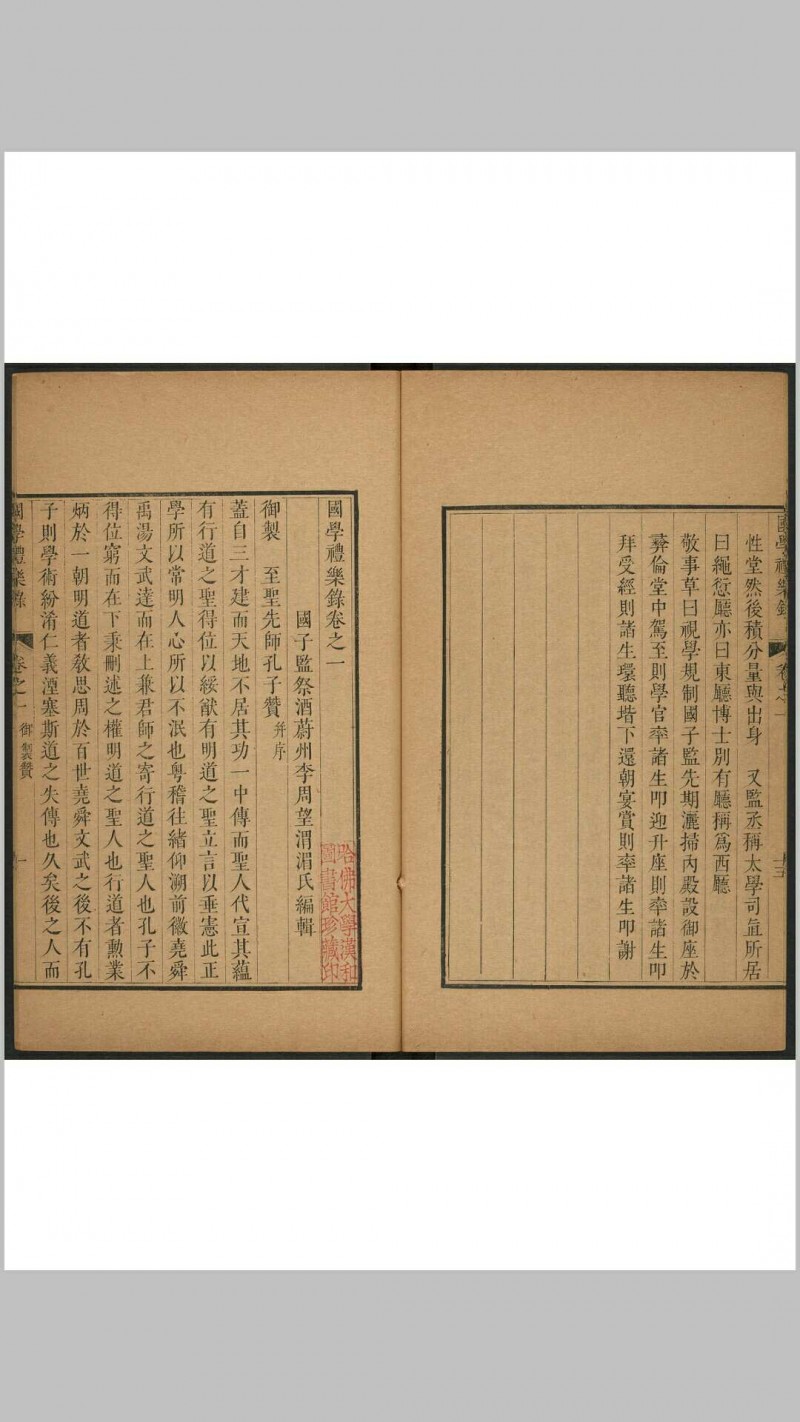 國學禮樂錄 卷之一
性堂然後積分量與出身　又監丞稱太學司直所居
曰繩愆廳亦曰東廳博士別有廳稱爲西廳
敬事草曰視學規制國子監先期灑掃內殿設御座於
彝倫堂中駕至則學官率諸生叩迎升座則率諸生叩
拜受經則諸生環聽堦下還朝宴賞則率諸生叩謝
國學禮樂錄卷之一
國子監祭酒蔚州李周望渭湄氏編輯
御製　至聖先師孔子贊并序
蓋自三才建而天地不居其功一中傳而聖人代宣其蘊
有行道之聖得位以綏猷有明道之聖立言以垂憲此正
學所以常明人心所以不泯也粵稽往緒仰溯前徽堯舜
禹湯文武達而在上兼君師之寄行道之聖人也孔子不
得位窮而在下秉刪述之權明道之聖人也行道者勳業
炳於一朝明道者敎思周於百世堯舜文武之後不有孔
子則學術紛淆仁義湮塞斯道之失傳也久矣後之人而
國學禮樂錄 卷之一 御製贊 一
哈佛大學漢和
圖書館珍藏印